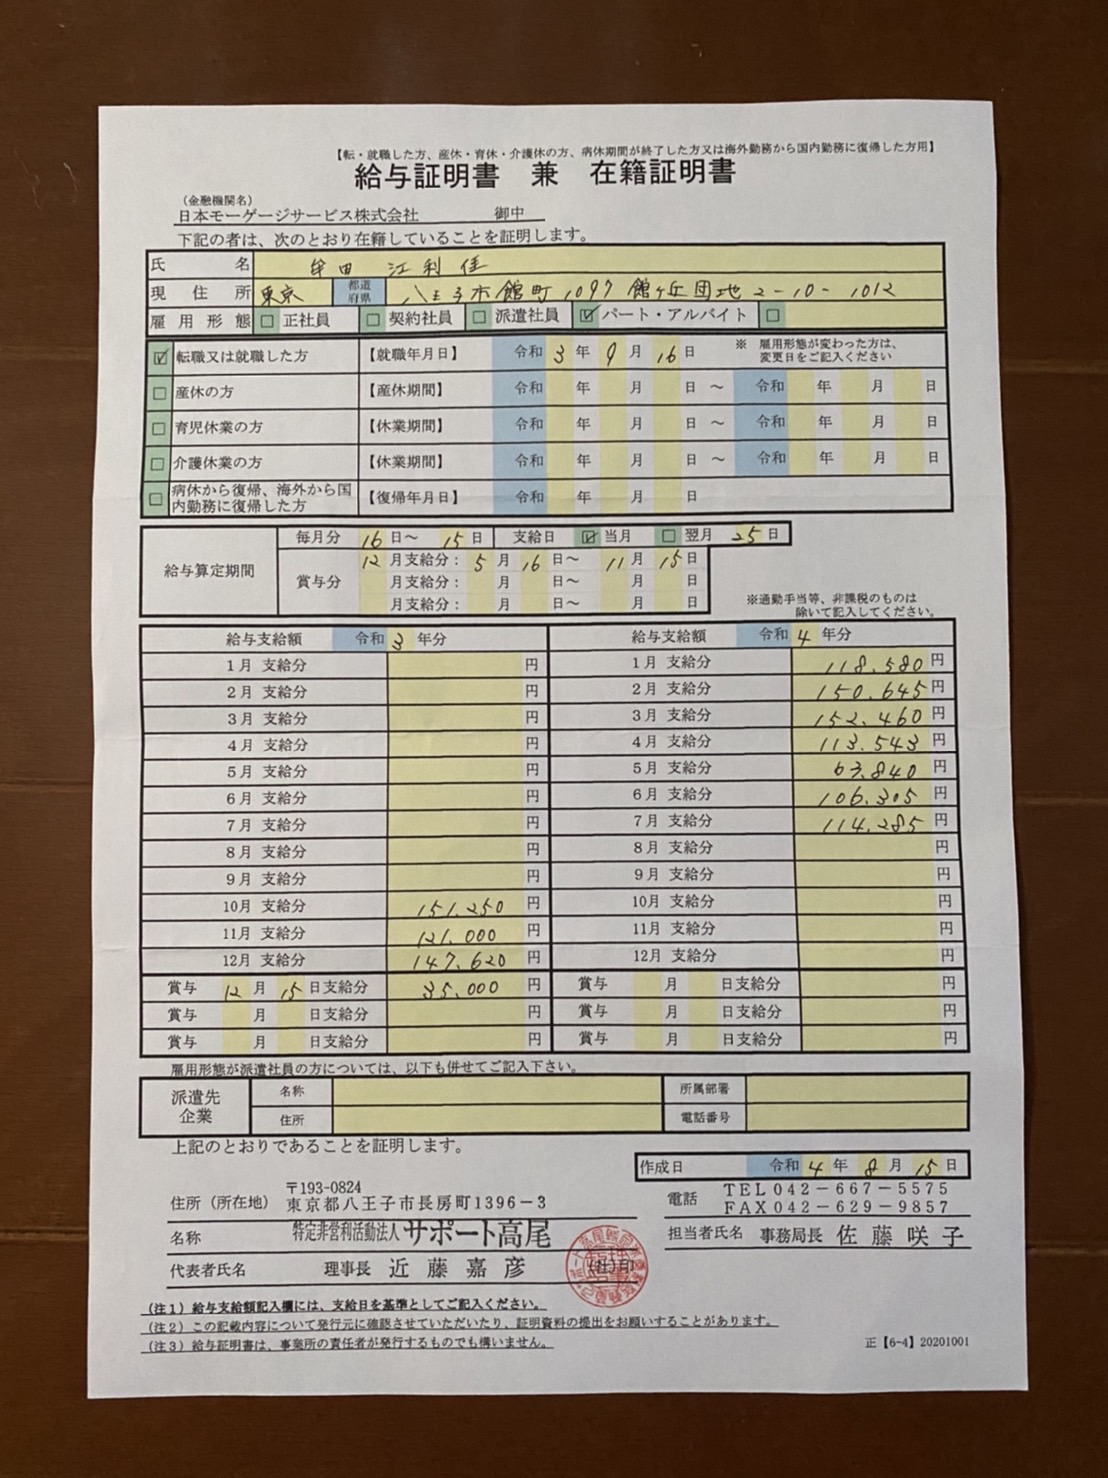 【転・就職した方、産休・育休・介護休の方、病休期間が終了した方又は海外勤務から国内勤務に復帰した方用】
給与証明書 兼 在籍証明書
(金融機関名)
日本モーゲージサービス株式会社 御中
下記の者は、次のとおり在籍していることを証明します。
氏 名 牟田 江利佳
現住所 東京 都道府県 八王子市館町1097 館ヶ丘団地2-10-1012
雇用形態 □ 正社員 □ 契約社員 □ 派遣社員 ☑ パート・アルバイト □
☑ 転職又は就職した方 【就職年月日】 令和 3 年 9 月 16 日 ※ 雇用形態が変わった方は、変更日をご記入ください
□ 産休の方 【産休期間】 令和 年 月 日 ~ 令和 年 月 日
□ 育児休業の方 【休業期間】 令和 年 月 日 ~ 令和 年 月 日
□ 介護休業の方 【休業期間】 令和 年 月 日 ~ 令和 年 月 日
□ 病休から復帰、海外から国内勤務に復帰した方 【復帰年月日】 令和 年 月 日
給与算定期間 毎月分 16 日~ 15 日 支給日 ☑ 当月 □ 翌月 25 日
賞与分 12 月支給分: 5 月 16 日~ 11 月 15 日
月支給分: 月 日~ 月 日
月支給分: 月 日~ 月 日
※通勤手当等、非課税のものは除いて記入してください。
給与支給額 令和 3 年分 給与支給額 令和 4 年分
1月 支給分 円 1月 支給分 118.580 円
2月 支給分 円 2月 支給分 150.645 円
3月 支給分 円 3月 支給分 152.460 円
4月 支給分 円 4月 支給分 113.543 円
5月 支給分 円 5月 支給分 63.840 円
6月 支給分 円 6月 支給分 106.305 円
7月 支給分 円 7月 支給分 114.285 円
8月 支給分 円 8月 支給分 円
9月 支給分 円 9月 支給分 円
10月 支給分 151.250 円 10月 支給分 円
11月 支給分 121.000 円 11月 支給分 円
12月 支給分 147.620 円 12月 支給分 円
賞与 12 月 15 日支給分 35.000 円 賞与 月 日支給分 円
賞与 月 日支給分 円 賞与 月 日支給分 円
賞与 月 日支給分 円 賞与 月 日支給分 円
雇用形態が派遣社員の方については、以下も併せてご記入下さい。
派遣先企業 名称 所属部署
住所 電話番号
上記のとおりであることを証明します。
作成日 令和 4 年 8 月 15 日
住所(所在地) 〒193-0824
東京都八王子市長房町1396-3
電話 TEL042-667-5575
FAX042-629-9857
名称 特定非営利活動法人サポート高尾
担当者氏名 事務局長 佐藤咲子
代表者氏名 理事長 近藤嘉彦 (社)印
(注1)給与支給額記入欄には、支給日を基準としてご記入ください。
(注2)この記載内容について発行元に確認させていただいたり、証明資料の提出をお願いすることがあります。
(注3)給与証明書は、事業所の責任者が発行するものでも構いません。
正【6-4】20201001